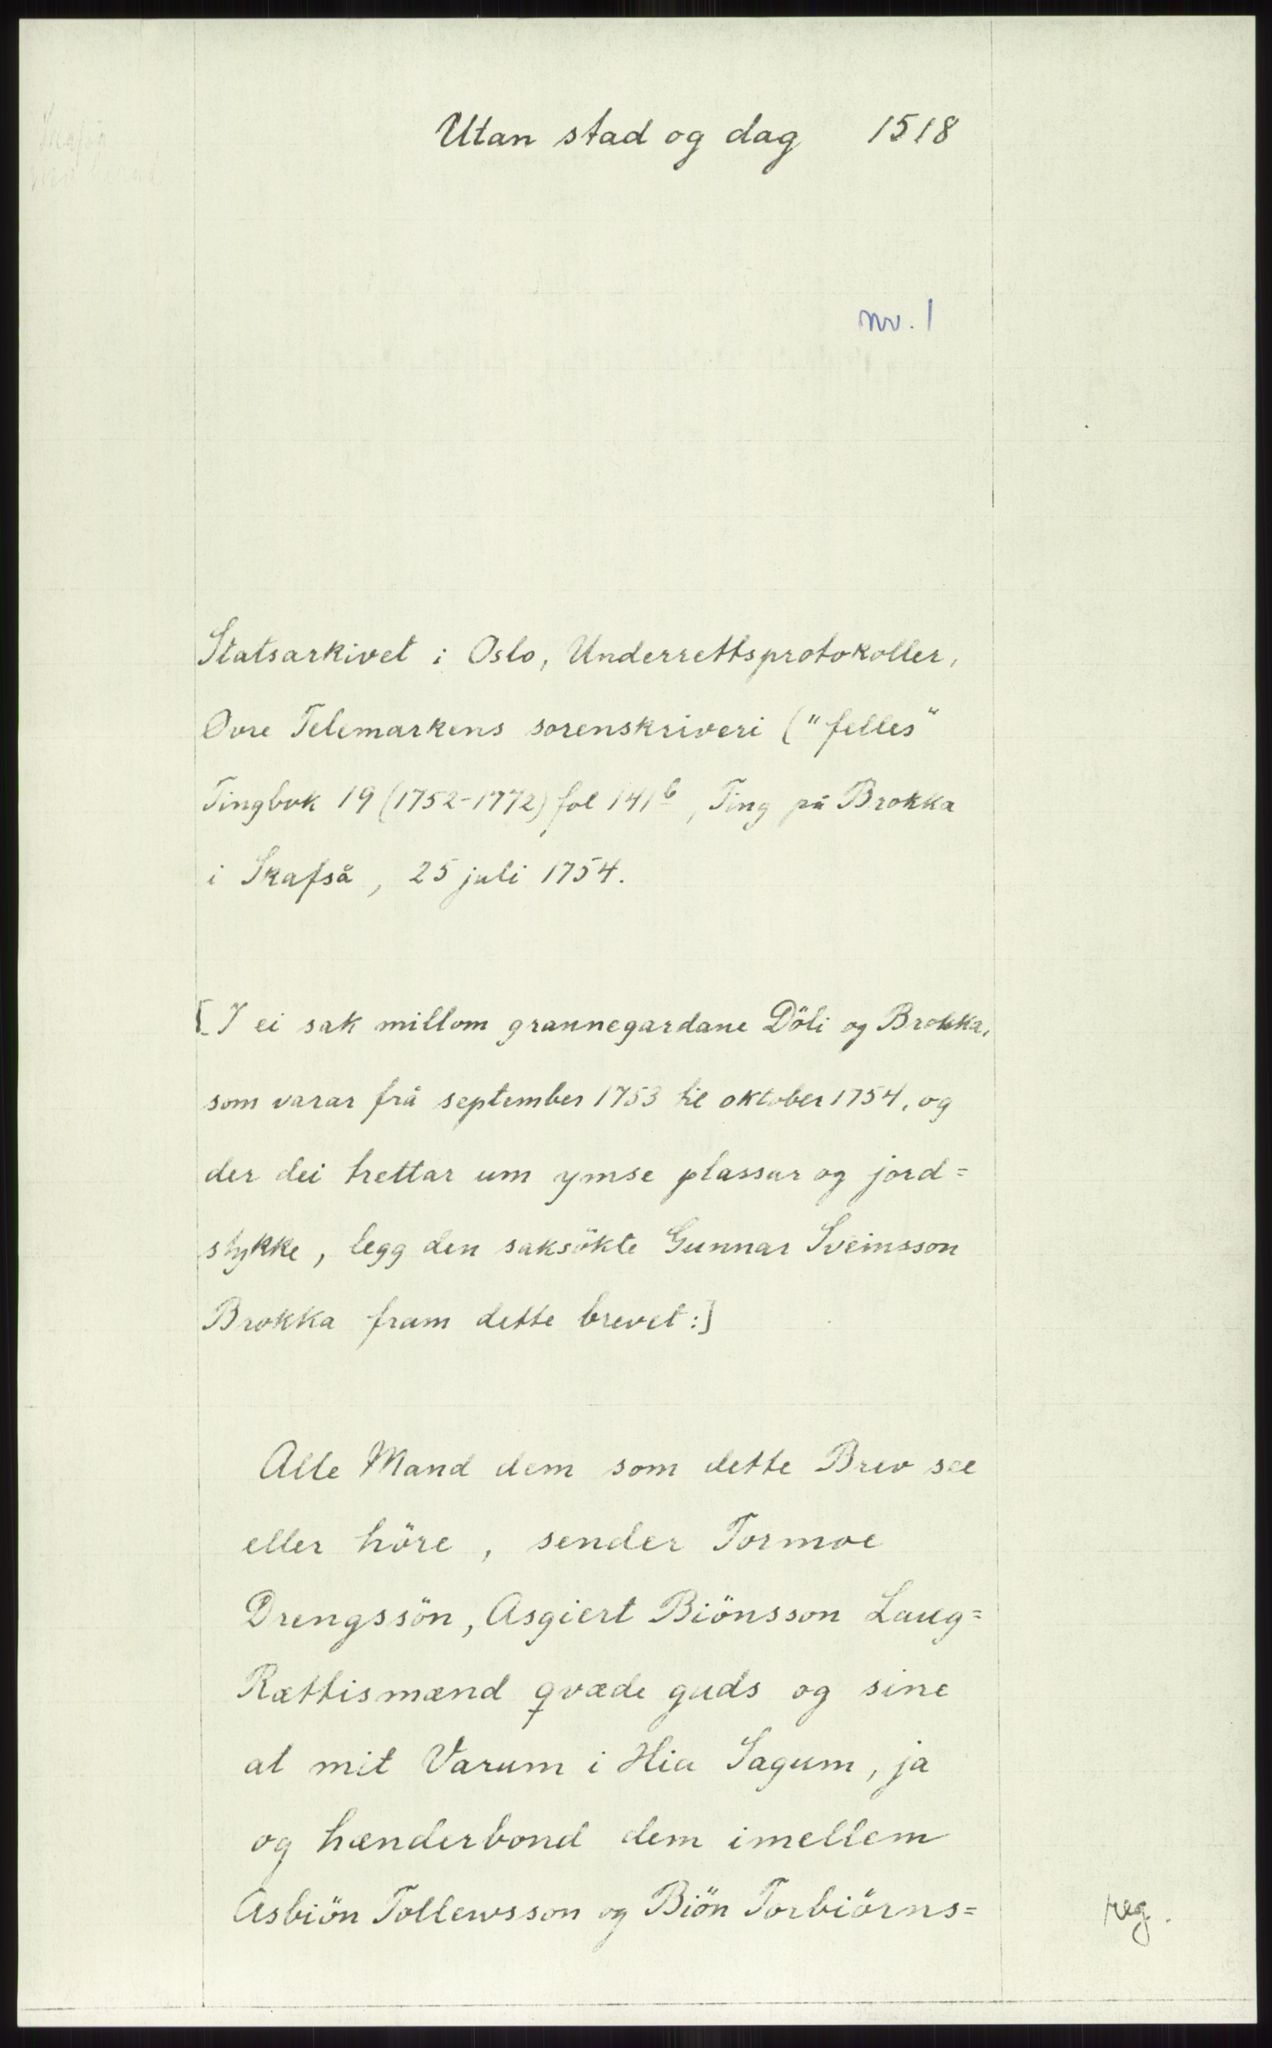 Utan stad og dag 1518
nr. 1
Statsarkivet i Oslo, Underrettsprotokoller,
Øvre Telemarkens sorenskriveri ("felles"
Tingbok 19 (1752-1772) fol 141b, Ting på Brokka
i Skafså, 25 juli 1754.
[I ei sak millom grannegardane Döli og Brokka,
som varar frå september 1753 til oktober 1754, og
der dei trettar um ymse plassar og jord=
stykke, legg den saksökte Gunnar Sveinsson
Brokka fram dette brevet:]
Alle Mand dem som dette Brev see
eller höre, sender Tormoe
Drengssön, Asgiert Biönsson Laug=
Rættismænd qvæde guds og sine
at mit Varum i Hia Sagum, ja
og hænderbond dem imellem
Asbiön Tollewsson og Biön Torbiörns=
reg.